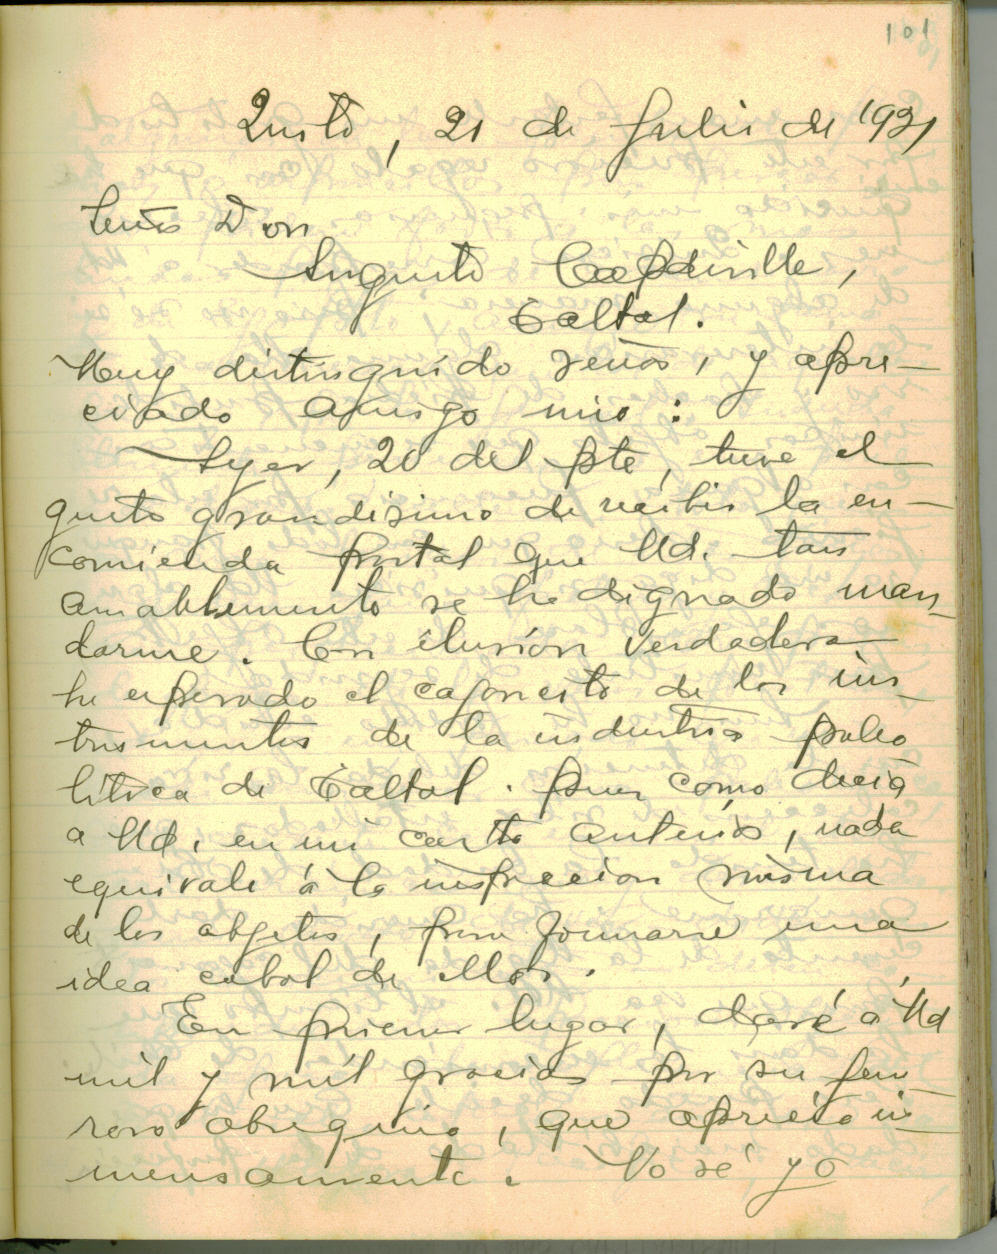 101
Quito, 21 de Julio de 1921
Señor Don
Augusto Capdeville,
Taltal.
Muy distinguido señor, y apre-
ciado amigo mio:
Ayer, 20 del pte, tuve el
gusto grandisimo de recibir la en-
comienda postal que Ud. tan
amablemente se ha dignado man-
darme. Con ilusión verdadera
he esperado el cajoncito de los ins-
trumentos de la industria paleo
lítica de Taltal. Pues como decia
a Ud. en mi carta anterior, nada
equivale á la inspeccion misma
de los objetos, para formarse una
idea cabal de ellos.
En primer lugar, daré á Ud
mil y mil gracias por su gene
roso obsequio, que aprecio in-
mensamente. No sé yo